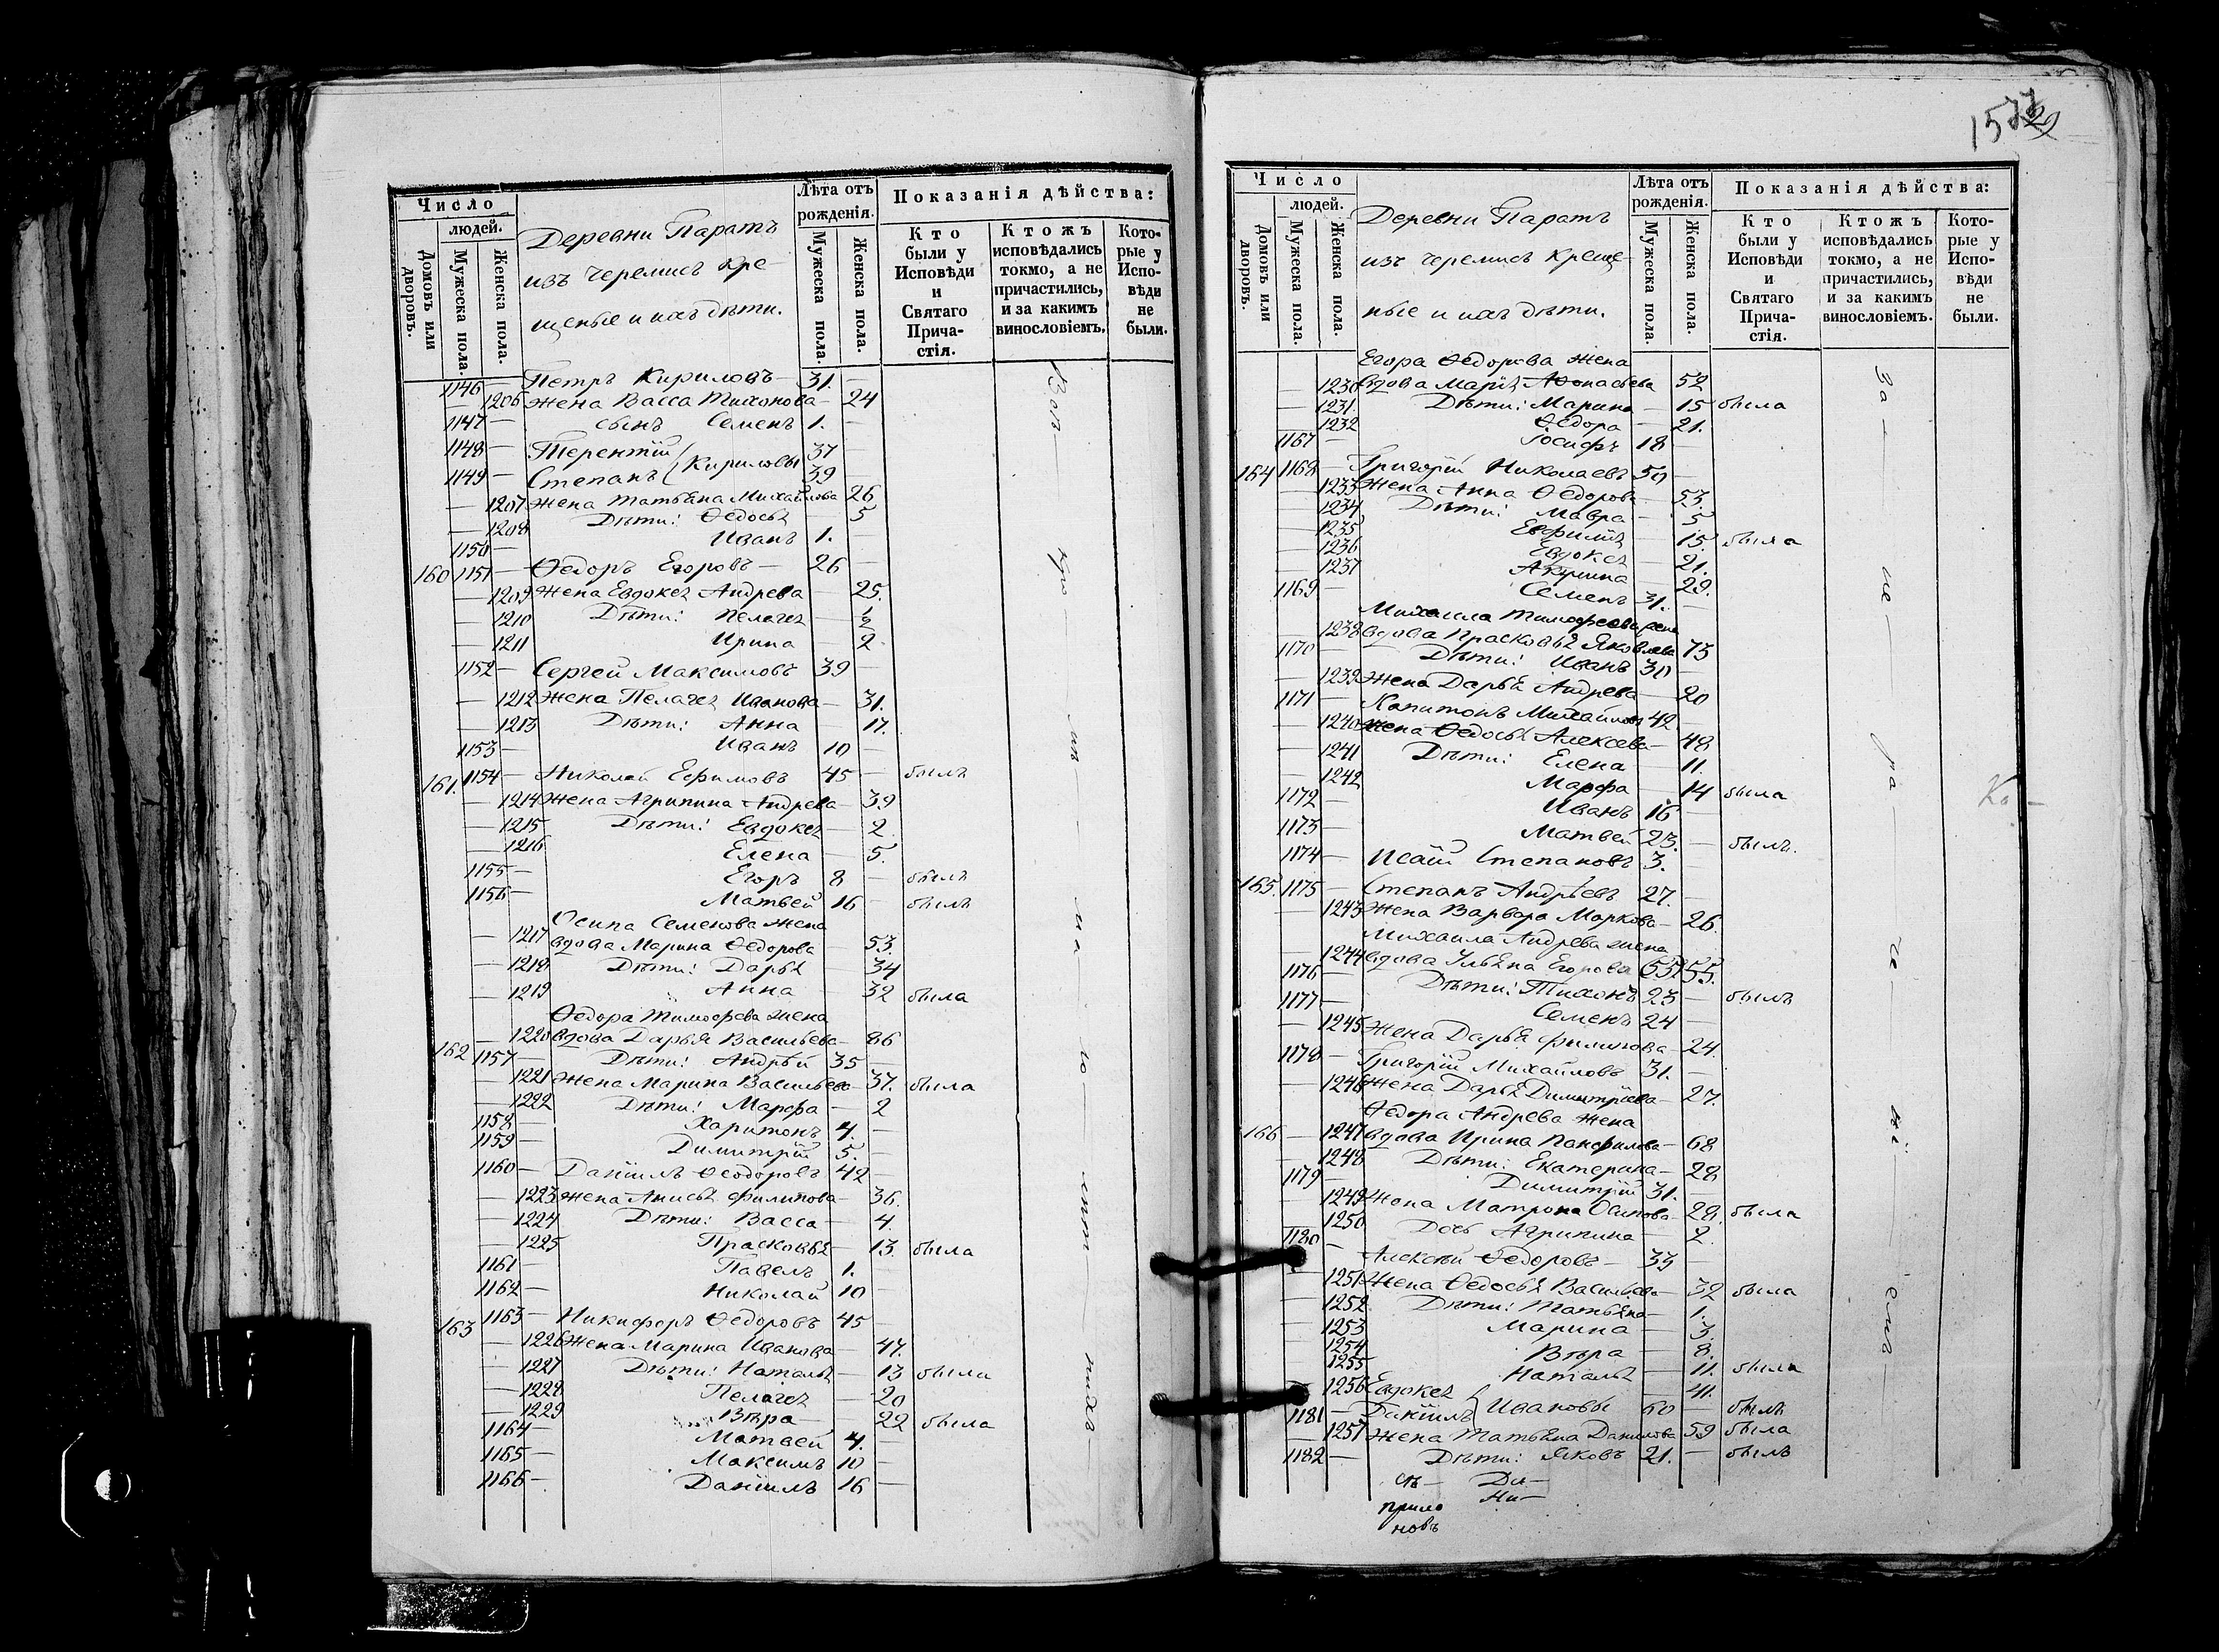 Число
людей.
Домовъ или дворовъ.
Мужеска пола.
Женска пола.
Деревни Паратъ
изъ черемисъ кре-
щеные и ихъ дѣти.
Лѣта отъ рожденія.
Мужеска пола.
Женска пола.
Показанія дѣйства:
Кто были у Исповѣди и Святаго Прича-стія.
Ктожъ исповѣдались токмо, а не причастились, и за какимъ винословіемъ.
Кото-рые у Испо-вѣди не были.
1146 — Петръ Кириловъ — 31. —
— 1206 жена Васса Тихонова — 24
1147 — сынъ Семенъ 1. —
1148 — Терентій Кириловы 37 —
1149 — Степанъ 39 —
— 1207 жена Татьяна Михайлова 26
— 1208 Дѣти: Ѳедосья 5
1150 — Иванъ 1. —
160 1151 — Ѳедоръ Егоровъ — 26 —
— 1209 жена Евдокея Андрева — 25.
— 1210 Дѣти: Пелагея — ½
— 1211 Ирина 2
1152 — Сергей Максимовъ 39 —
— 1212 жена Пелагея Иванова — 31.
— 1213 Дѣти: Анна — 17.
1153 — Иванъ 10 —
161. 1154 — Николай Ефимовъ 45 — былъ
— 1214 жена Агрипина Андрева — 39
— 1215 Дѣти: Евдокея — 2
— 1216 Елена — 5.
1155 — Егоръ 8 — былъ
1156 — Матвей 16 — былъ
Осипа Семенова жена
— 1217 вдова Марина Ѳедорова — 53.
— 1218 Дѣти: Дарья — 34
— 1219 Анна — 32 была
Ѳедора Тимофева жена
— 1220 вдова Дарья Васильева — 86
162 1157 — Дѣти: Андрѣй 35 —
— 1221 жена Марина Васильева — 37. была
— 1222 Дѣти: Марфа — 2
1158 — Харитонъ 4. —
1159 — Димитрій 5. —
1160 — Даніилъ Ѳеодоровъ 42 —
— 1223 жена Анисья Филипова — 36.
— 1224 Дѣти: Васса — 4.
— 1225 Прасковья — 13. была
1161 — Павелъ 1. —
1162 — Николай 10 —
163 1163 — Никифоръ Ѳедоровъ 45 —
— 1226 жена Марина Иванова — 47.
— 1227 Дѣти: Наталья — 13 была
— 1228 Пелагея — 20
— 1229 Вѣра — 22 была
1164 — Матвей 4. —
1165 — Максимъ 10 —
1166 — Даніилъ 16 —
Число
людей.
Домовъ или дворовъ.
Мужеска пола.
Женска пола.
Деревни Паратъ
изъ черемисъ креще-
ные и ихъ дѣти.
Лѣта отъ рожденія.
Мужеска пола.
Женска пола.
Показанія дѣйства:
Кто были у Исповѣди и Святаго Прича-стія.
Ктожъ исповѣдались токмо, а не причастились, и за какимъ винословіемъ.
Кото-рые у Испо-вѣди не были.
Егора Ѳедорова жена
— 1230 вдова Марія Афонасьева 52
— 1231. Дѣти: Марина — 15 была
— 1232 Ѳедора — 21.
1167 — Іосифъ 18 —
164 1168 — Григорій Николаевъ 50 —
— 1233 жена Анна Ѳедорова — 53.
— 1234 Дѣти: Мавра — 5
— 1235 Евфимія — 15. была
— 1236 Евдокея — 21.
— 1237 Акулина — 29.
1169 — Семенъ 31. —
Михаила Тимофеева жена
— 1238 вдова Прасковья Яковлева 73
1170 — Дѣти: Иванъ 30 —
— 1239 жена Дарья Андрева — 20
1171 — Капитонъ Михайловъ 42. —
— 1240 жена Ѳедосья Алексева — 48
— 1241 Дѣти: Елена — 11.
— 1242 Марфа — 14 была
1172 — Иванъ 16 —
1173 — Матвей 23. — былъ.
1174 — Исаій Степановъ 3. —
165. 1175 — Степанъ Андрѣевъ 27. —
— 1243 жена Варвара Маркова — 26.
Михаила Андрева жена
— 1244 вдова Ульяна Егорова 55. 55.
1176 — Дѣти: Тихонъ 23 — былъ
1177 — Семенъ 24 —
— 1245 жена Дарья Филипова — 24.
1178 — Григорій Михайловъ 31. —
— 1246 жена Дарья Димитріева — 27.
Ѳедора Андрева жена
166 — 1247 вдова Ирина Панфилова — 68
— 1248 Дѣти: Екатерина — 28
1179 — Димитрій 31. —
— 1249 жена Матрона Осипова — 28. была
— 1250 Дочь Агрипина — 2.
1180 — Алексѣй Ѳедоровъ — 33 —
— 1251 жена Ѳедосья Васильева — 32 была
— 1252. Дѣти: Татьяна — 1.
— 1253 Марина — 3.
— 1254 Вѣра — 8.
— 1255 Наталья — 11. была
— 1256 Евдокея Ивановы — 41.
1181 — Даніилъ 60 — былъ
— 1257 жена Татьяна Данилова 59 была
1182 — Дѣти: Яковъ 21. — былъ